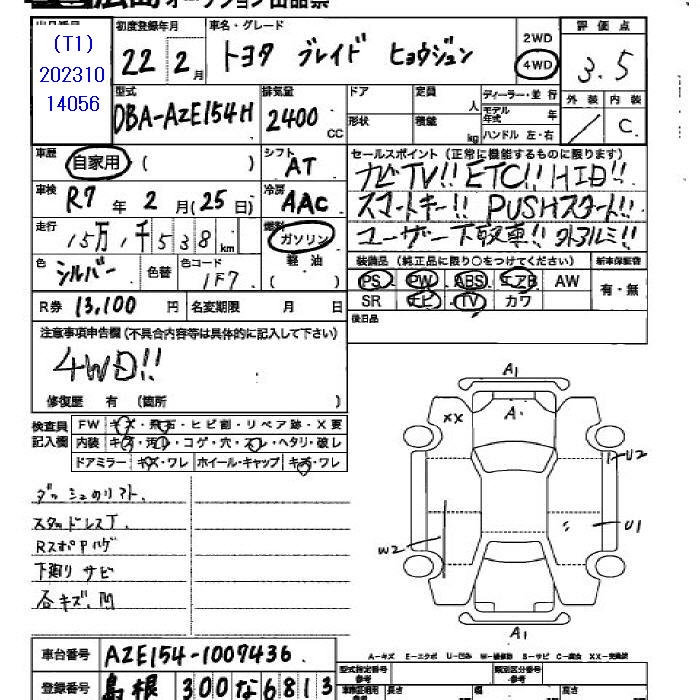 広島 オークション出品票
出品番号
(T1)
202310
14056
初度登録年月 22年 2月
車名・グレード トヨタ ブレイド ヒョウジュン
2WD
4WD
評価点
3.5
外装 内装
/ C
型式 DBA-AZE154H
排気量 2400 CC
ドア 定員 人
形状 積載 kg
ディーラー・並行
モデル年式 年
ハンドル 左・右
車歴 自家用 ( )
シフト AT
車検 R7年 2月(25日)
冷房 AAC
走行 15万1千538km
燃料 ガソリン
軽油
( )
色 シルバー 色替 色コード 1F7
セールスポイント(正常に機能するものに限ります)
ナビTV!! ETC!! HID!!
スマートキー!! PUSHスタート!!
ユーザー下取車!! 外アルミ!!
装備品(純正品に限り○をつけてください) 新車保証書
PS PW ABS エアB AW 有・無
SR ナビ TV カワ
後日品
R券 13,100円 名変期限 月 日
注意事項申告欄(不具合内容等は具体的に記入して下さい)
4WD!!
修復歴 有 (箇所 )
検査員記入欄
FW キズ・飛石・ヒビ割・リペア跡・X要
内装 キズ・汚れ・コゲ・穴・スレ・ヘタリ・破レ
ドアミラー キズ・ワレ ホイール・キャップ キズ・ワレ
スタッドレスT.
下廻り サビ
各キズ、凹
A1
XX
A
U2
U1
W2
A1
A-キズ E-エクボ U-凹み W-補修跡 S-サビ C-腐食 XX-交換済
車台番号 AZE154-1009436
登録番号 島根 300 な 6813
型式指定番号 参考
類別区分番号 参考
長さ 幅 高さ